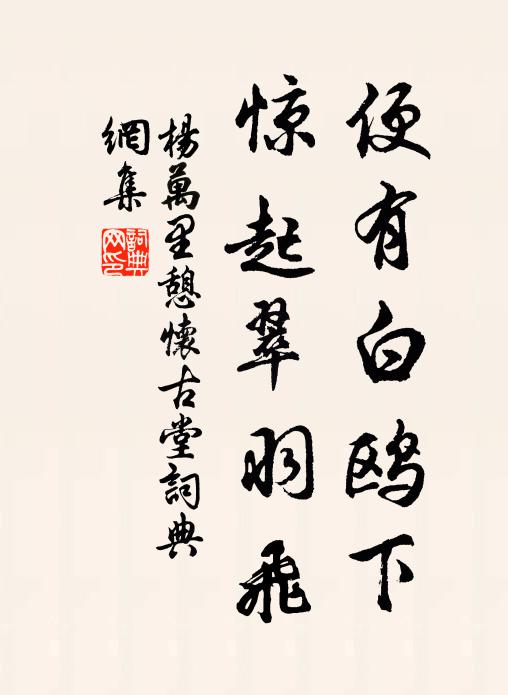 便有白鸥下
惊起翠羽飛
楊萬里憩懷古堂詞典
網集
詞典
网印